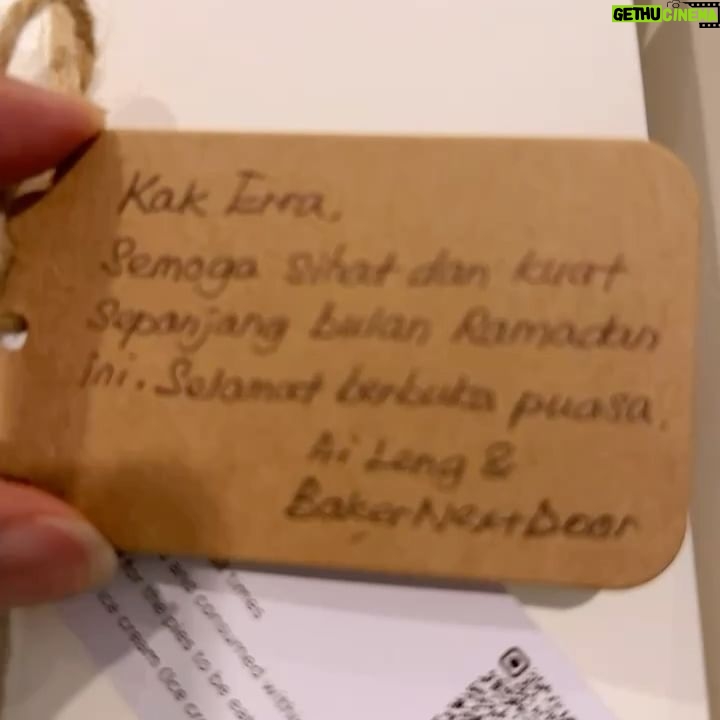 GETHUCINEMA
Kak Erra,
Semoga sihat dan kuat
Sepanjang bulan Ramadan
ini. Selamat berbuka puasa.
Ai Leng &
BakerNextDoor
times
consumed within
for the pies to be
ice cream (ice